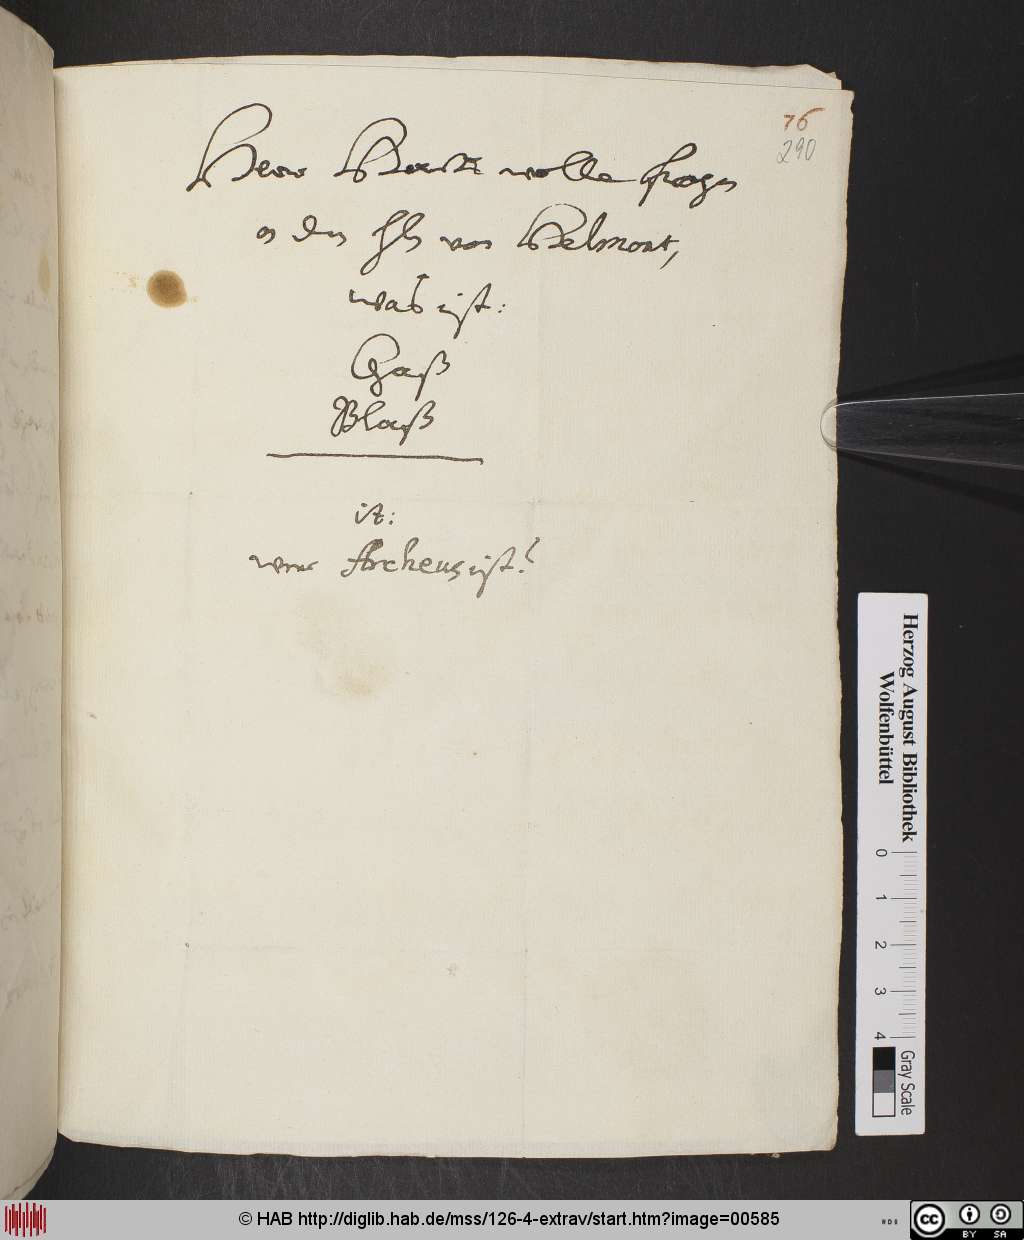 76
290
Herr Hark wolle fragen
den Hl von Helmont,
was ist:
Gaß
Blaß
it:
wer Archeus ist?
Herzog August Bibliothek
Wolfenbüttel
0 1 2 3 4
Gray Scale
© HAB http://diglib.hab.de/mss/126-4-extrav/start.htm?image=00585
cc BY SA